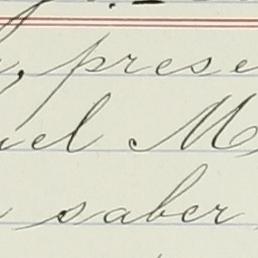 , prese
uel M
saber